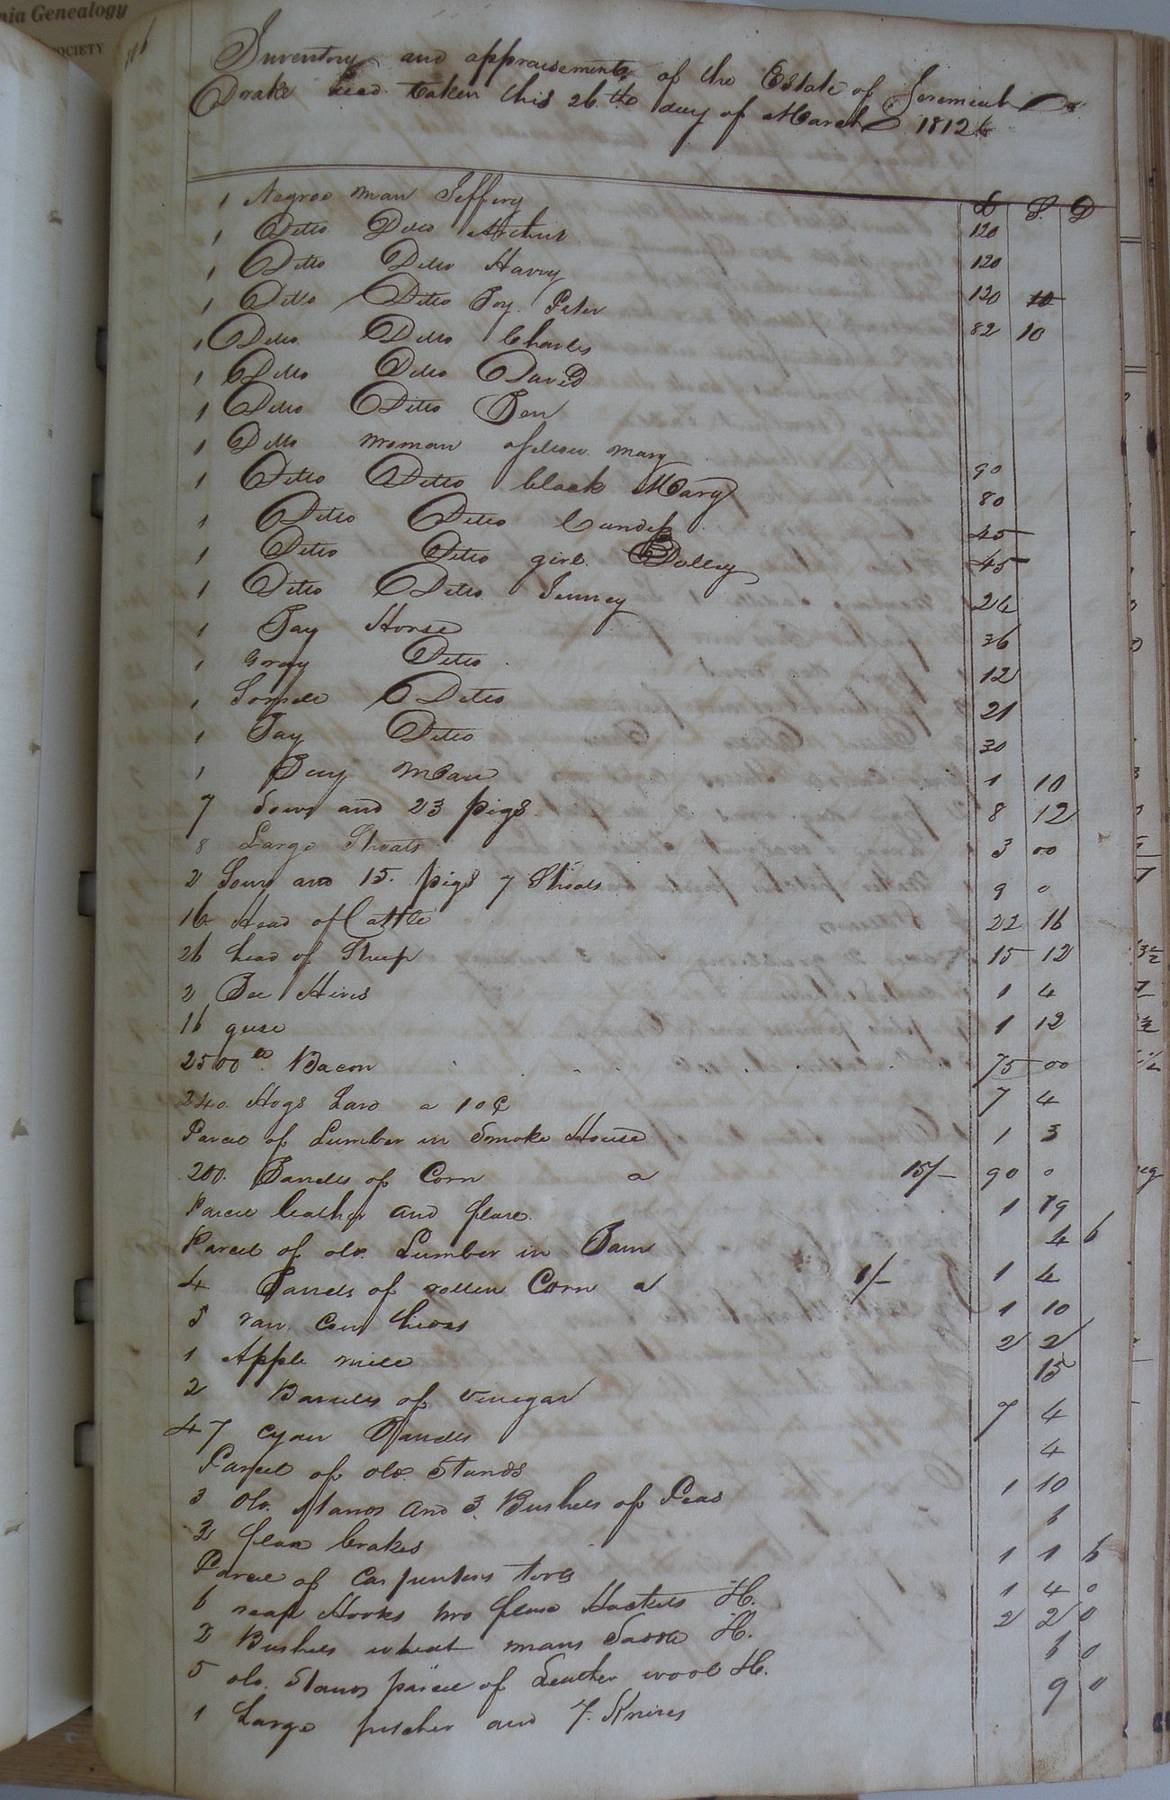 nia Genealogy
SOCIETY
Inventory and appraisement of the Estate of Jeremiah
Drake decd. taken this 26th day of March 1812
£ S. D
1 Negroe man Jeffery 120
1 Ditto Ditto Arthur 120
1 Ditto Ditto Harry 120 10
1 Ditto Ditto Boy Peter 82 10
1 Ditto Ditto Charles
1 Ditto Ditto David
1 Ditto Ditto Ben
1 Ditto woman yellow mary 90
1 Ditto Ditto black Mary 80
1 Ditto Ditto 45
1 Ditto Ditto girl Dolley 45
1 Ditto Ditto Jenney 26
1 Bay Horse 36
1 Gray Ditto 12
1 Sorrele Ditto 21
1 Bay Ditto 30
1 Bay Mare 1 10
7 Sows and 23 pigs 8 12
8 Large Shoats 3 00
2 Sows and 15 pigs 7 Shoats 9 0
16 Head of Cattle 22 16
26 head of Sheep 15 12
2 Bee Hives 1 4
16 geese 1 12
2500 lb Bacon 75 00
240 Hogs Lard a 7 4
Parcel of Lumber in Smoke House 1 3
200 Barrels of Corn a 15/- 90 0
Parcel leather and flax 1 19
Parcel of old Lumber in Barn 4 6
4 Barrels of rotten Corn a 1 4
5 raw Cow hides 1 10
1 Apple mill 2 2
2 Barrels of vinegar 15
47 Cyder 7 4
Parcel of old Stands 4
3 old Stands and 3 Bushels of Peas 1 10
2 flax brakes 6
Parcel of Carpenters tools 1 1 6
6 reap Hooks two flax Hackels H. 1 4 0
2 Bushels wheat mans Saddle H. 2 2 0
5 old Stands parcel of Leather wool H. 6 0
1 Large pitcher and 7 Knives 9 0